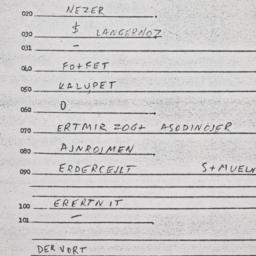 020 NEZER
030 $ LANGERNOZ
031 -
040 FOTFET
050 KALUPET
060 0
070 ERTMIR ZOGT ASODINOJER
080 AJNROJMEN
090 ERDERCEJLT S+MUELN
100 ERERTNIT
101 -
DER VORT